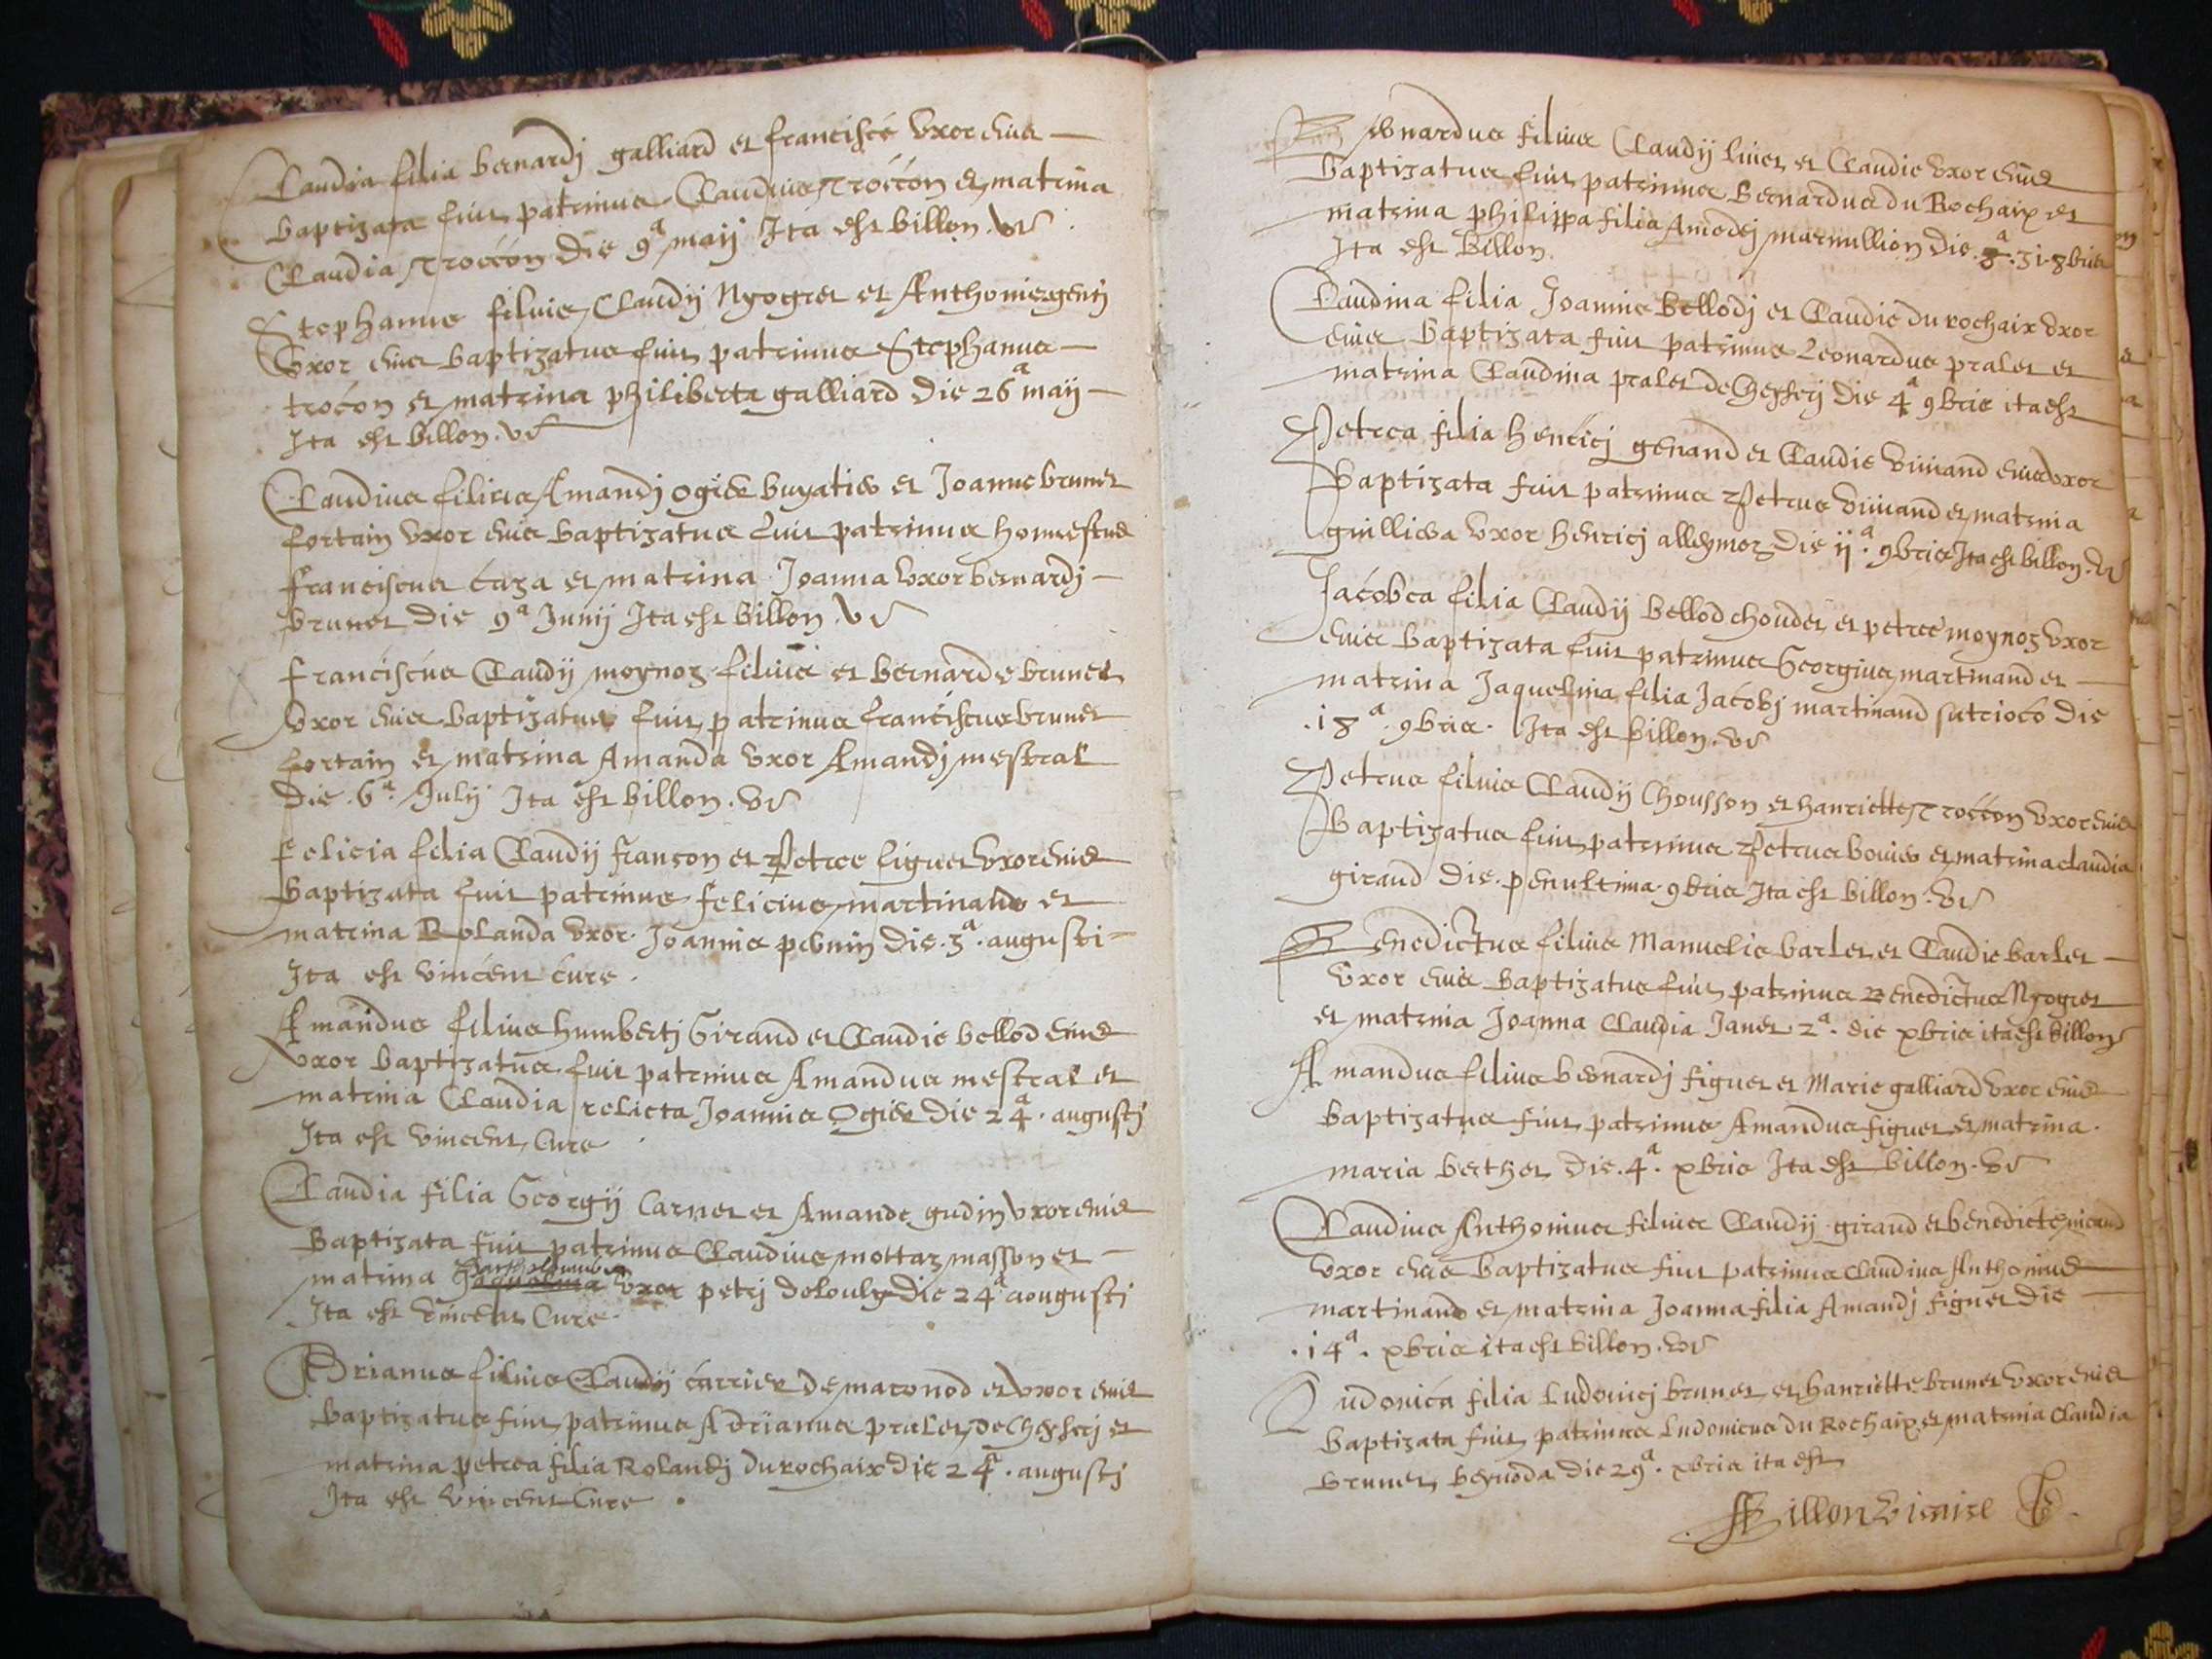 Claudia filia bernardj galliard et francisce vxor eius
baptizata fuit patrinus Claudius troccon et matrina
Claudia troccon die 9a maij Ita est billon. vi
Stephanus filius Claudij Nyogret et Anthonie gentj
vxor eius baptizatus fuit patrinus Stephanus
trocon et matrina philiberta galliard die 26a maij
Ita est billon. vi
Claudius filius Amandj ogier et Joanne brunet
fortain vxor eius baptizatus fuit patrinus honnestus
franciscus caza et matrina Joanna vxor bernardj
brunet die 9a Junij Ita est billon. vi
franciscus Claudij moynoz filius et bernarde brunet
vxor eius baptizatus fuit patrinus franciscus brunet
fortain et matrina Amanda vxor Amandj mestral
die .6a. Julij Ita est billon. vi
felicia filia Claudij franson et Petree figuet vxor eius
baptizata fuit patrinus felicius martinand et
matrina Rolanda vxor Joannis die .3a. augusti
Ita est vincent cure.
Amandus filius humbertj Giraud et Claudie bellod eius
vxor baptizatus fuit patrinus Amandus mestral et
matrina Claudia relicta Joannis Ogier die 24a. augustj
Ita est vincent Cure
Claudia filia Georgij Carnet et Amande gudin vxor eius
baptizata fuit patrinus Claudius mottaz masson et
matrina vxor petrj delouly die 24a aougustj
Ita est vincent Cure.
Adrianus filius Claudij carrier de maconod et vxor eius
baptizatus fuit patrinus Adrianus pralet de Cheysserj et
matrina petrea filia Rolandj du rochaix die 24a. augustj
Ita est vincent Cure.
Bernardus filius Claudij liuet et Claudie vxor eius
baptizatus fuit patrinus Bernardus du Rochaix et
matrina philippa filia Amodej marmillion die .31. 8bris
Ita est billon
Claudina filia Joannis bellodj et Claudie du rochaix vxor
eius baptizata fuit patrinus Leonardus pralet et
matrina Claudina pralet de Cheysserj die 4a 9bris ita est
Petrea filia henricj genand et Claudie viuiand eius vxor
baptizata fuit patrinus Petrus viuiand et matrina
vxor henricj alleymoz die ij.a 9bris Ita est billon. vi
Jacobea filia Claudij bellod choudet et petree moynoz vxor
eius baptizata fuit patrinus Georgius martinand et
matrina Jaquelina filia Jacobj martinand die
.18a. 9bris. Ita est billon. vi
Petrus filius Claudij Chousson et hanriette troccon vxor eius
baptizatus fuit patrinus Petrus bouier et matrina claudia
giraud die. penultima. 9bris Ita est billon. vi
Benedictus filius Manuelis barlet et Claudie barlet
vxor eius baptizatus fuit patrinus Benedictus Nyogret
et matrina Joanna Claudia Janet 2a. die xbris ita est billon
Amandus filius bernardj figuet et Marie galliard vxor eius
baptizatus fuit patrinus Amandus figuet et matrina.
maria berthet die. 4a. xbris Ita est billon. vi
Claudius Anthonius filius Claudij giraud et benedicte nicoud
vxor eius baptizatus fuit patrinus claudius Anthonius
martinand et matrina Joanna filia Amandj figuet die
.14a. xbris ita est billon. vi
Ludouica filia Ludouicj brunet et hanriette brunet vxor eius
baptizata fuit patrinus Ludouicus du Rochaix et matrina Claudia
brunet die 29a. xbris ita est
Billon vicaire